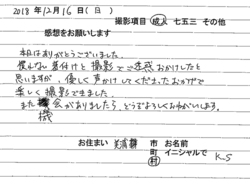 2018年12月16日(日)
撮影項目 成人 七五三 その他
感想をお願いします
本日はありがとうございました。
慣れない着付けと撮影でご迷惑おかけしたと
思いますが、優しく声かけしてくださったおかげで
楽しく撮影できました。
また機会がありましたら、どうぞよろしくおねがいします。
お住まい 美浦 市 町 村 お名前 イニシャルで K.S